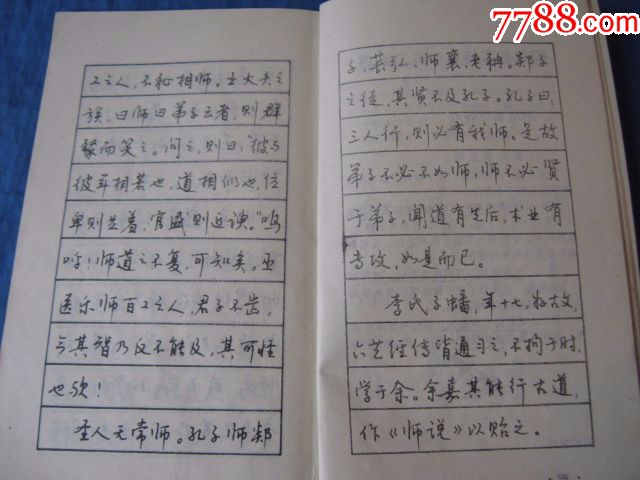 7788.com
中国收藏热线
工之人，不耻相师。士大夫之
族，曰师曰弟子云者，则群
聚而笑之。问之，则曰：“彼与
彼年相若也，道相似也，位
卑则足羞，官盛则近谀。”呜
呼！师道之不复，可知矣。巫
医乐师百工之人，君子不齿，
今其智乃反不能及，其可怪
也欤！
圣人无常师。孔子师郯
子，苌弘、师襄、老聃。郯子
之徒，其贤不及孔子。孔子曰：
三人行，则必有我师。是故
弟子不必不如师，师不必贤
于弟子，闻道有先后，术业有
专攻，如是而已。
李氏子蟠，年十七，好古文，
六艺经传皆通习之，不拘于时，
学于余。余嘉其能行古道，
作《师说》以贻之。